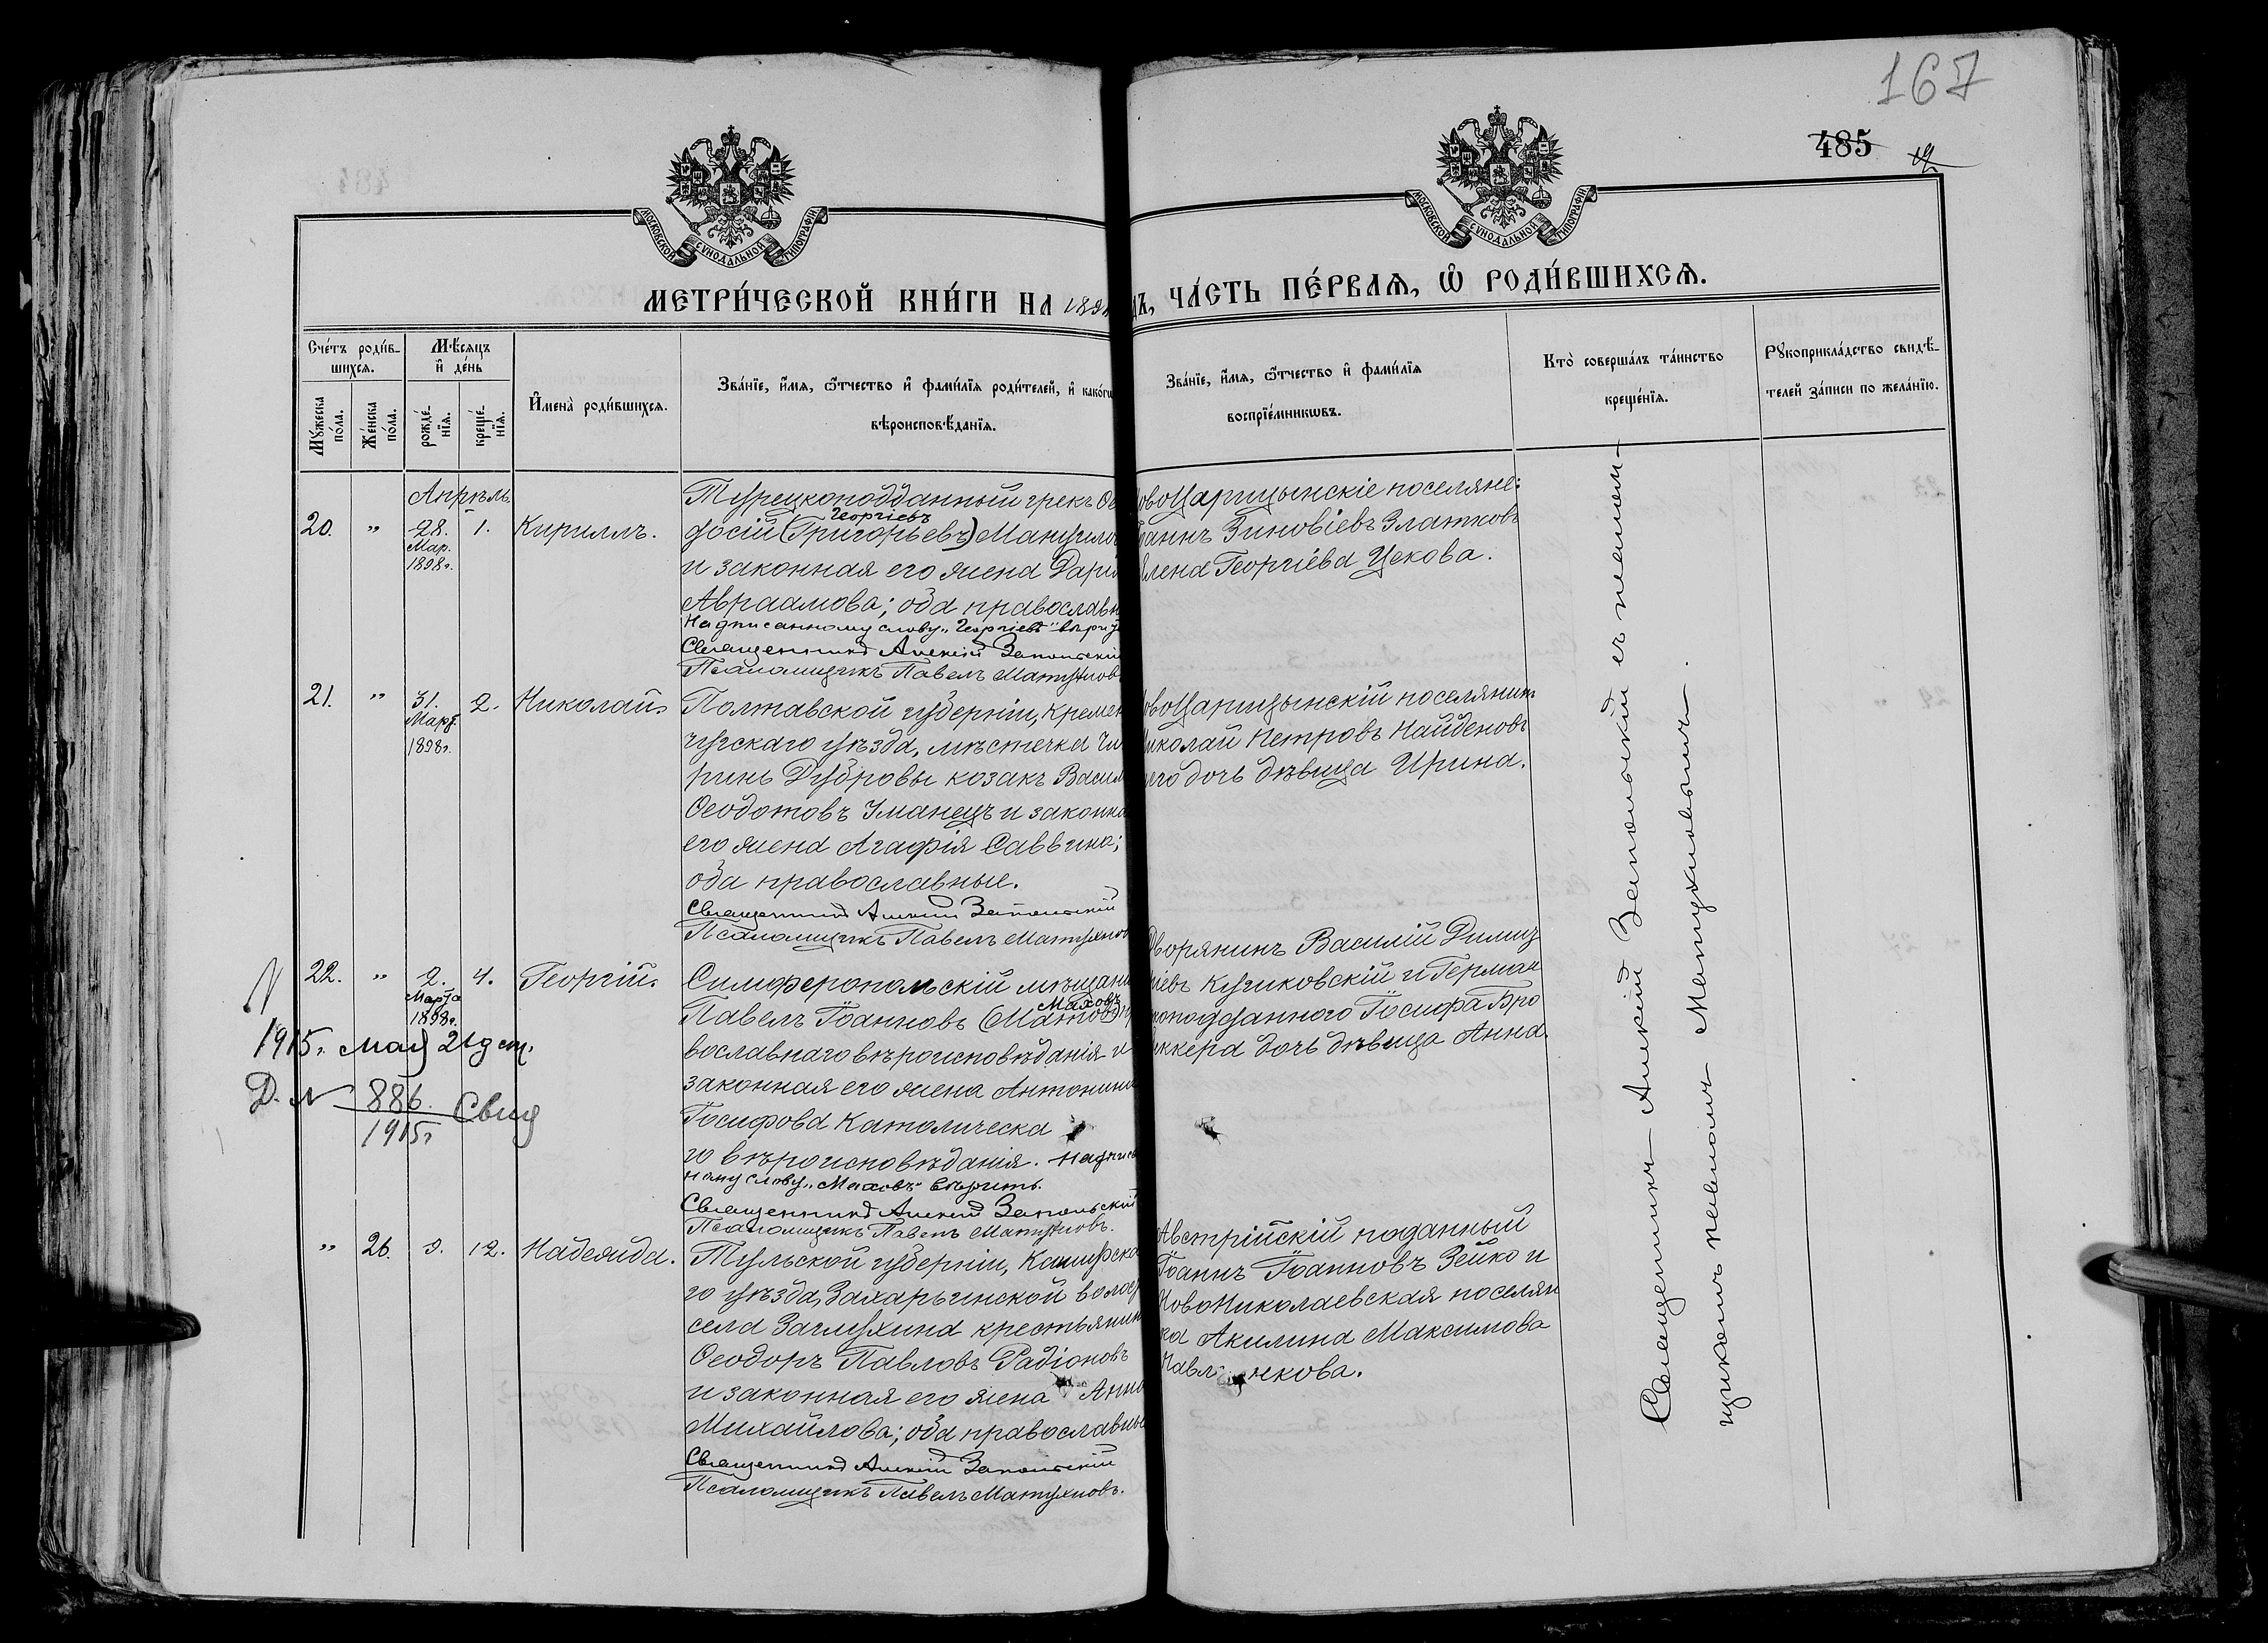 167
485
МОСКОВСКОЙ СѴНОДАЛЬНОЙ ТИПОГРАФІИ
МОСКОВСКОЙ СѴНОДАЛЬНОЙ ТИПОГРАФІИ
МЕТРИ́ЧЕСКОЙ КНИ́ГИ НА 189
ДЪ, ЧА́СТЬ ПЕ́РВАѦ, Ѡ҆ РОДИ́ВШИХСѦ.
Сче́тъ роди́в-
шихсѧ.
Мꙋ́жеска по́ла.
Же́нска по́ла.
Мѣ́сѧцъ и҆ де́нь
рожде́-
нїѧ.
креще́-
нїѧ.
И҆мена̀ роди́вшихсѧ.
Зва́нїе, и҆́мѧ, ѻ҆́тчество и҆ фами́лїѧ роди́телей, и҆ како́гѡ
вѣроисповѣ́данїѧ.
Зва́нїе, и҆́мѧ, ѻ҆́тчество и҆ фами́лїѧ
воспрїе́мникѡвъ.
Кто̀ соверша́лъ та́инство
креще́нїѧ.
Рꙋкоприкла́дство свидѣ́-
телей за́писи по жела́нїю.
Апрѣль
20. " 28. 1. Кириллъ.
Мар.
1898г.
Турецкоподданный грекъ Ѳео
Георгіевъ
досій (Григорьевъ) Мангуло
и законная его жена Дарія
Авраамова; оба православн
Надписанному слову „Георгіевъ" вѣрить
Священникъ Алексій Запольскій
Псаломщикъ Павелъ Матухновъ
овоЦарицынскіе поселяне:
Іоаннъ Зиновіевъ Златковъ
лена Георгіева Цекова.
21. " 31. 2. Николай.
Март.
1898г.
Полтавской губерніи, Кремен
чугскаго уѣзда, мѣстечка Чи
ринъ Дубровы козакъ Васил
Ѳеодотовъ Уманецъ и законна
его жена Агафія Саввина;
оба православные.
Священникъ Алексій Запольскій
Псаломщикъ Павелъ Матухнов
овоЦарицынскій поселянинъ
иколай Петровъ Найденовъ
его дочь дѣвица Ирина.
N 22. " 2. 4. Георгій.
Марта
1898г.
1915г. мая 21 дня.
Д. N 886 Свид
1915г
Симферопольскій мѣщани
Маховъ
Павелъ Іоанновъ (Матовъ) пр
вославнаго вѣроисповѣданія и
законная его жена Антонина
Іосифова Католическа
го вѣроисповѣданія. Надписан
ному слову „Маховъ" вѣрить.
Священникъ Алексій Запольскій
Псаломщикъ Павелъ Матухновъ.
Дворянинъ Василій Димит
ріевъ Куликовскій и Герман
скоподданного Іосифа Бро
ккера дочь дѣвица Анна.
" 26. 9. 12. Надежда.
Тульской губерніи, Каширска
го уѣзда, Захарьинской волос
села Заглухина крестьянин
Ѳеодоръ Павловъ Радіоновъ
и законная его жена Анна
Михайлова; оба православны
Священникъ Алексій Запольскій
Псаломщикъ Павелъ Матухновъ.
Австрійскій поданный
Іоаннъ Іоанновъ Зейко и
НовоНиколаевская поселян
ка Акилина Максимова
Священникъ Алексій Запольскій съ псалом-
щикомъ Павломъ Матухновымъ.